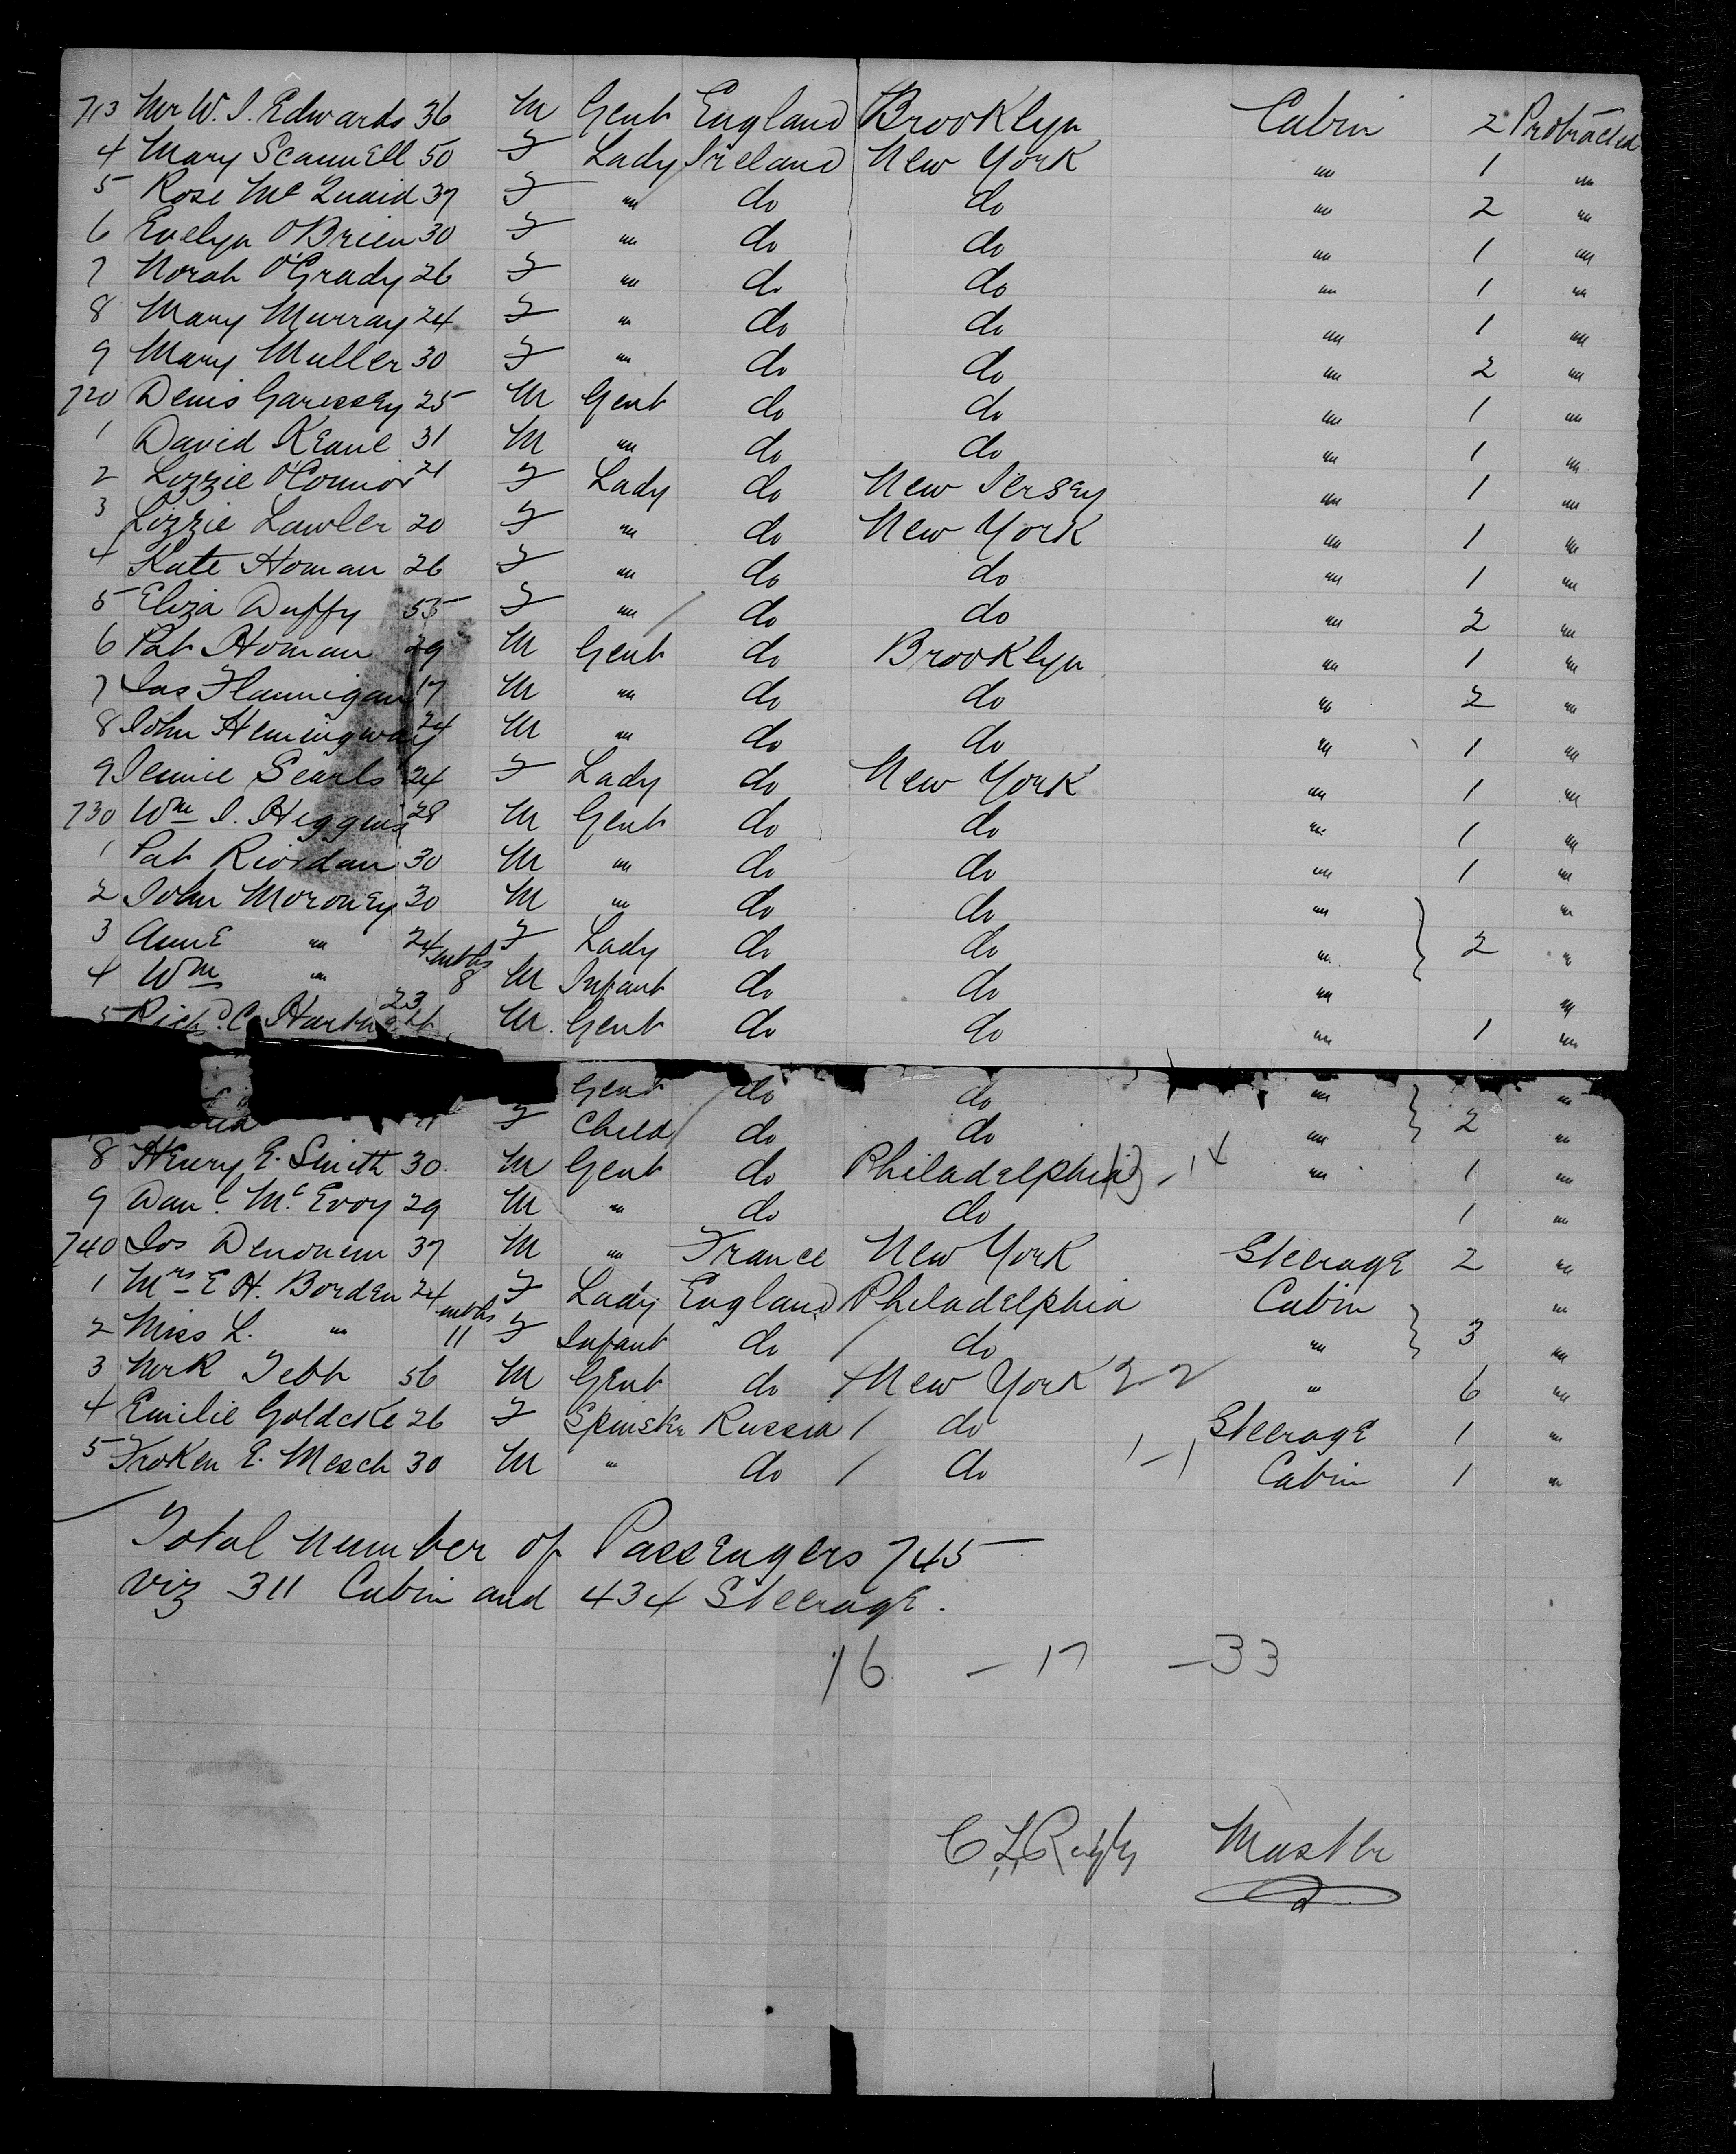 713 Mr W. J. Edwards 36 M Gent England Brooklyn Cabin 2 Protracted
4 Mary Scannell 50 F Lady Ireland New York " 1 "
5 Rose Mc Quaid 37 F " do do " 2 "
6 Evelyn O'Brien 30 F " do do " 1 "
7 Norah O'Grady 26 F " do do " 1 "
8 Mary Murray 24 F " do do " 1 "
9 Mary Muller 30 F " do do " 2 "
720 Denis Garissey 25 M Gent do do " 1 "
1 David Keane 31 M " do do " 1 "
2 Lizzie O'Connor 21 F Lady do New Jersey " 1 "
3 Lizzie Lawler 20 F " do New York " 1 "
4 Kate Homan 26 F " do do " 1 "
5 Eliza Duffy 55 F " do do " 2 "
6 Pat Homan 29 M Gent do Brooklyn " 1 "
7 Jas Flannigan 17 M " do do " 2 "
8 John Hemingway 24 M " do do " 1 "
9 Jennie Searls 24 F Lady do New York " 1 "
730 Wm J. Higgins 28 M Gent do do " 1 "
1 Pat Riordan 30 M " do do " 1 "
2 John Moroney 30 M " do do " "
3 Anne " 24 F Lady do do " 2 "
4 Wm " mths 8 M Infant do do " "
5 Richd. C. 23 M. Gent do do " 1 "
Gent do do " "
F Child do do " 2 "
8 Henry E. Smith 30 M Gent do Philadelphia " 1 "
9 Danl. Mc Evoy 29 M " do do 1 "
740 Jos 37 M " France New York Steerage 2 "
1 Mrs E H. Borden 24 F Lady England Philadelphia Cabin "
2 Miss L. " mths 11 F Infant do do " 3 "
3 Mr R Tebb 56 M Gent do New York 2 2 " 6 "
4 Emilie Goldcke 26 F Spinster Russia / do Steerage 1 "
5 Froken E. Mesch 30 M " do / do 1-1 Cabin 1 "
Total number of Passengers 745
viz 311 Cabin and 434 Steerage.
16 - 17 - 33
Master